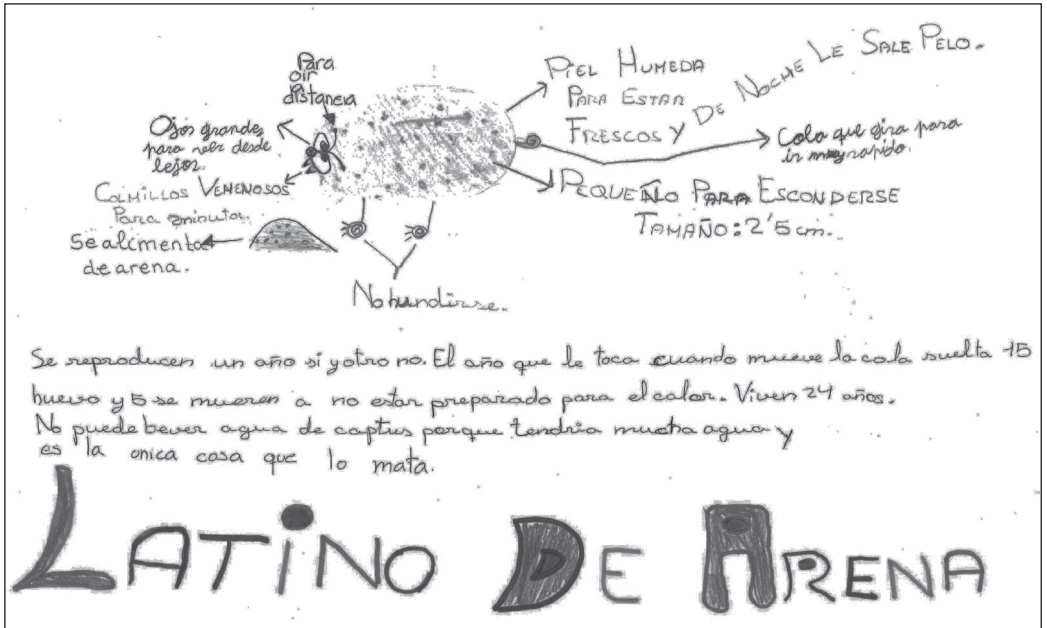 Para
oir
distancia
Ojos grandes
para ver desde
lejos.
COLMILLOS VENENOSOS
Para minutar.
Se alimenta
de arena.
No hundirse.
PIEL HUMEDA
PARA ESTAR
FRESCOS Y DE NOCHE LE SALE PELO.
Cola que gira para
ir muy rapido.
PEQUEÑO PARA ESCONDERSE
TAMAÑO: 2'5 cm.
Se reproducen un año si y otro no. El año que le toca cuando mueve la cola suelta 15
huevo y 5 se mueren a no estar preparado para el calor. Viven 24 años.
No puede bever agua de captus porque tendria mucha agua y
es la onica cosa que lo mata.
LATINO DE ARENA